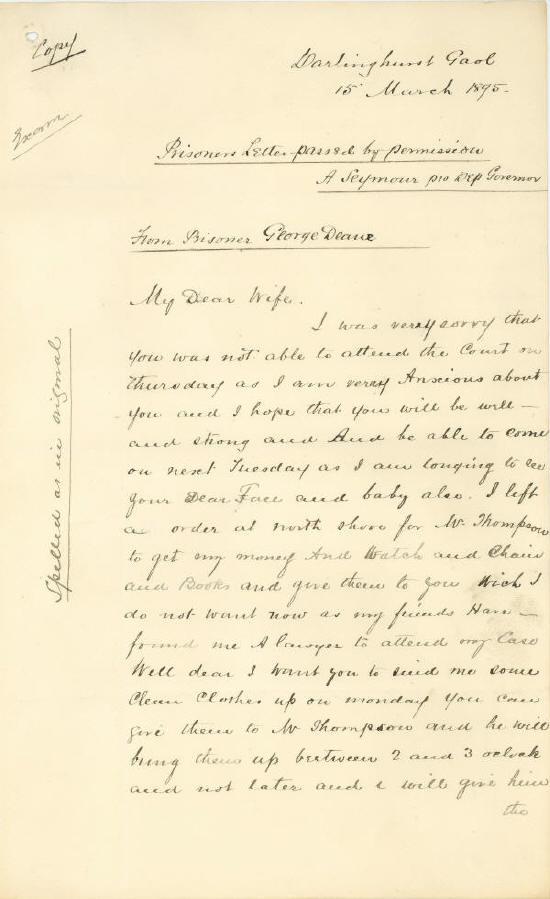 Copy
Darlinghurst Gaol
15 March 1895.
Exam
Prisoners Letter passed by permission
A Seymour pro Dep Governor
From Prisoner George Deane
My Dear Wife.
I was verry sorry that
you was not able to attend the Court on
Thursday as I am verry Anxious about
you and I hope that you will be well —
and strong and And be able to come
on next Tuesday as I am longing to see
your Dear Face and baby also. I left
a order at north shore for Mr Thompson
to get my money And Watch and Chain
and Books and give them to you Wich I
do not want now as my friends Have —
found me A lawyer to attend my Case
Well dear I want you to send me some
Clean Clothes up on monday you can
give them to Mr Thompson and he will
bring them up bertween 2 and 3 oclock
and not later and I will give him
the
Spelled as in original